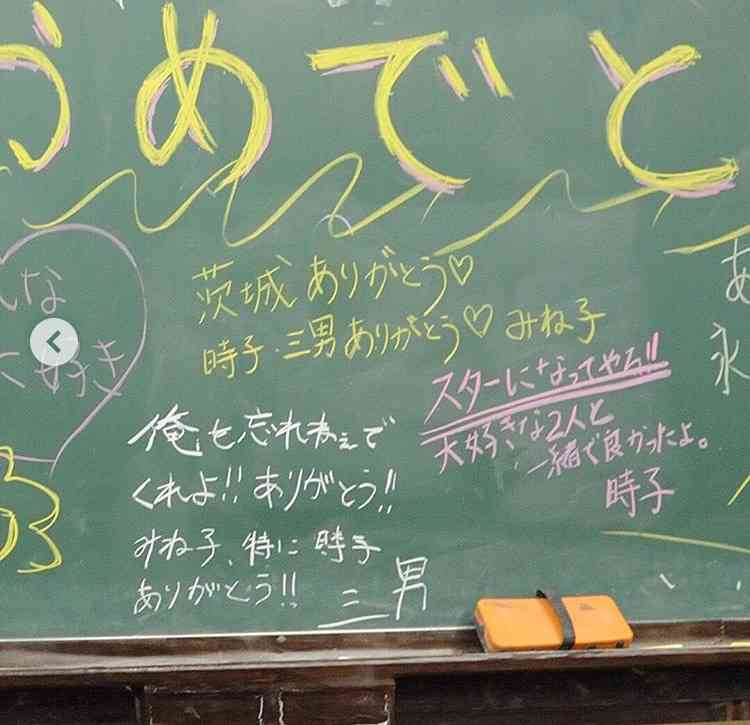 おめでと
んな
好き
茨城ありがとう♡
時子・三男ありがとう♡ みね子
スターになってやる!!
大好きな2人と
一緒で良かったよ。
時子
俺も忘れねぇで
くれよ!! ありがとう!!
みね子、特に時子
ありがとう!!
三男
あ
永